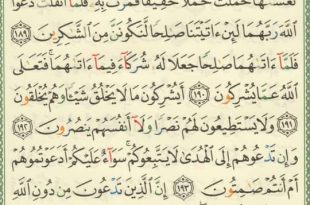 حَمَلَتْ حَمْلًا خَفِيفًا فَمَرَّتْ بِهِۦ فَلَمَّآ أَثْقَلَت دَّعَوَا
ٱللَّهَ رَبَّهُمَا لَئِنْ ءَاتَيْتَنَا صَٰلِحًا لَّنَكُونَنَّ مِنَ ٱلشَّٰكِرِينَ ١٨٩
فَلَمَّآ ءَاتَىٰهُمَا صَٰلِحًا جَعَلَا لَهُۥ شُرَكَآءَ فِيمَآ ءَاتَىٰهُمَا فَتَعَٰلَى
ٱللَّهُ عَمَّا يُشْرِكُونَ ١٩٠ أَيُشْرِكُونَ مَا لَا يَخْلُقُ شَيْـًٔا وَهُمْ يُخْلَقُونَ
١٩١ وَلَا يَسْتَطِيعُونَ لَهُمْ نَصْرًا وَلَآ أَنفُسَهُمْ يَنصُرُونَ ١٩٢
وَإِن تَدْعُوهُمْ إِلَى ٱلْهُدَىٰ لَا يَتَّبِعُوكُمْ سَوَآءٌ عَلَيْكُمْ أَدَعَوْتُمُوهُمْ
أَمْ أَنتُمْ صَٰمِتُونَ ١٩٣ إِنَّ ٱلَّذِينَ تَدْعُونَ مِن دُونِ ٱللَّهِ